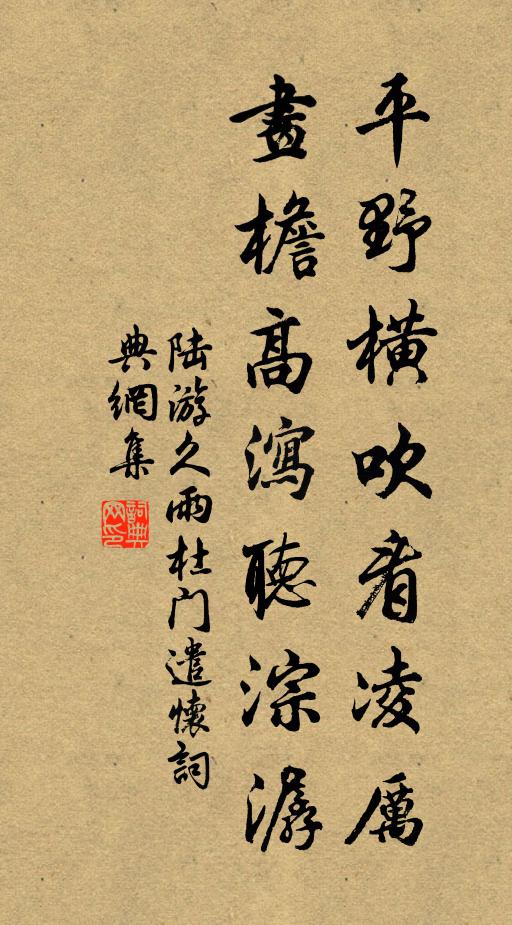 平野橫吹看凌厲
畫檐高瀉聽淙潺
陸游久雨杜門遣懷詞
典網集
詞典
网印